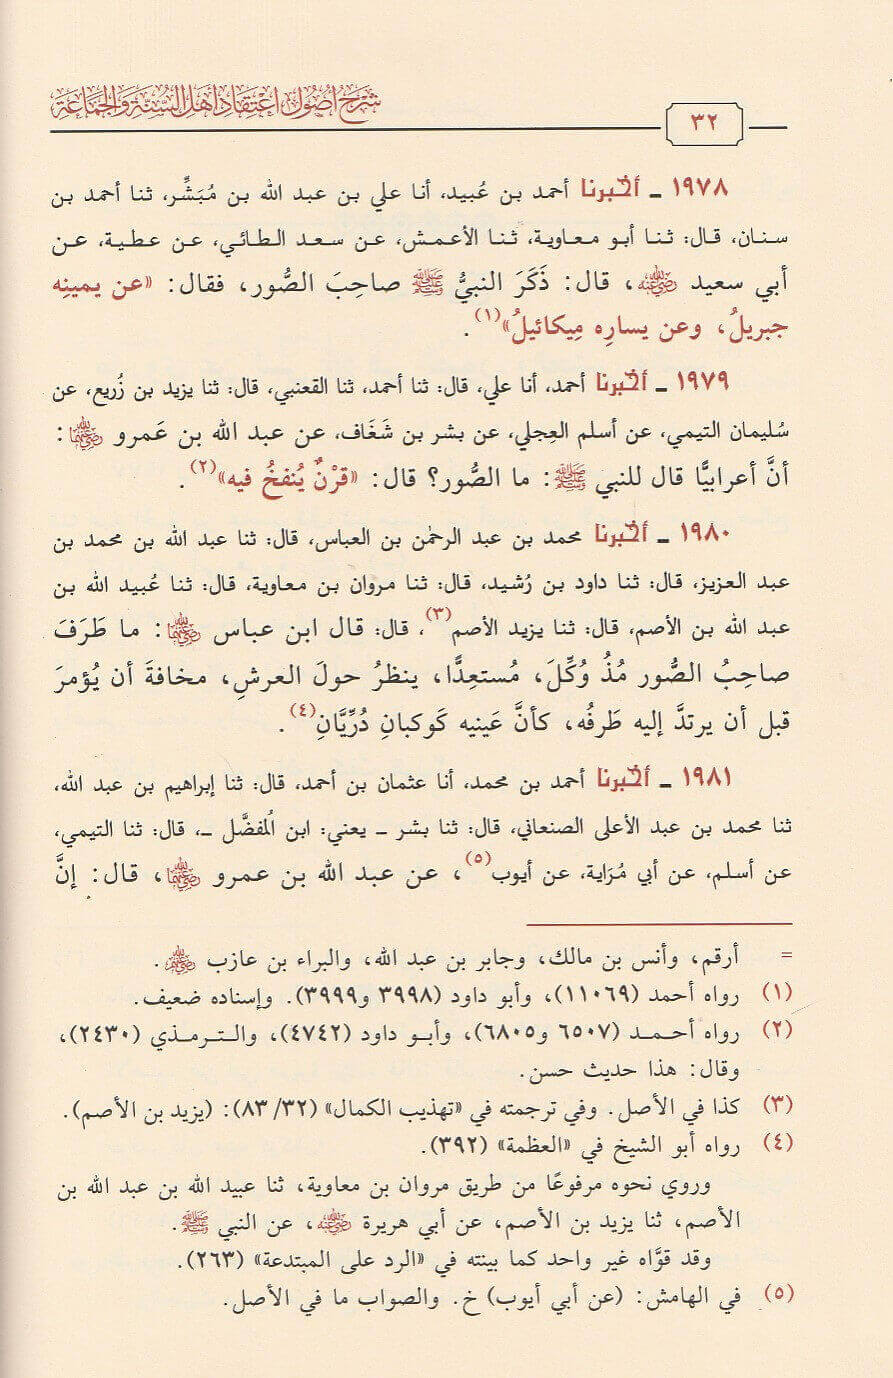 شرح أصول اعتقاد أهل السنة والجماعة
٣٢
١٩٧٨ ـ أخبرنا أحمد بن عُبيد، أنا علي بن عبد الله بن مُبَشِّر، ثنا أحمد بن
سنان، قال: ثنا أبو معاوية، ثنا الأعمش، عن سعد الطائي، عن عطية، عن
أبي سعيد رضي الله عنه، قال: ذَكَرَ النبيُّ ﷺ صاحِبَ الصُّور، فقال: «عن يمينِه
جبريلُ، وعن يسارِه مِيكائيلُ»(١).
١٩٧٩ ـ أخبرنا أحمد، أنا علي، قال: ثنا أحمد، ثنا القعنبي، قال: ثنا يزيد بن زُريع، عن
سُليمان التيمي، عن أسلم العِجلي، عن بشر بن شَغَاف، عن عبد الله بن عَمرو رضي الله عنهما:
أنَّ أعرابيًّا قال للنبي ﷺ: ما الصُّور؟ قال: «قرْنٌ يُنفخُ فيه»(٢).
١٩٨٠ ـ أخبرنا محمد بن عبد الرحمٰن بن العباس، قال: ثنا عبد الله بن محمد بن
عبد العزيز، قال: ثنا داود بن رُشيد، قال: ثنا مروان بن معاوية، قال: ثنا عُبيد الله بن
عبد الله بن الأصم، قال: ثنا يزيد الأصم(٣)، قال: قال ابن عباس رضي الله عنهما: ما طَرَفَ
صاحِبُ الصُّور مُذُ وُكِّلَ، مُستعِدًّا، ينظرُ حولَ العرشِ، مخافةَ أن يُؤمرَ
قبل أن يرتدَّ إليه طَرفُه، كأنَّ عَينيه كَوكبانِ دُرِّيَّانِ(٤).
١٩٨١ ـ أخبرنا أحمد بن محمد، أنا عثمان بن أحمد، قال: ثنا إبراهيم بن عبد الله،
ثنا محمد بن عبد الأعلى الصنعاني، قال: ثنا بشر ـ يعني: ابن المُفضَّل ـ، قال: ثنا التيمي،
عن أسلم، عن أبي مُرَاية، عن أيوب(٥)، عن عبد الله بن عمرو رضي الله عنهما، قال: إنَّ
= أرقم، وأنس بن مالك، وجابر بن عبد الله، والبراء بن عازب رضي الله عنهم.
(١) رواه أحمد (١١٠٦٩)، وأبو داود (٣٩٩٨ و٣٩٩٩). وإسناده ضعيف.
(٢) رواه أحمد (٦٥٠٧ و٦٨٠٥)، وأبو داود (٤٧٤٢)، والترمذي (٢٤٣٠)،
وقال: هذا حديث حسن.
(٣) كذا في الأصل. وفي ترجمته في «تهذيب الكمال» (٨٣/٣٢): (يزيد بن الأصم).
(٤) رواه أبو الشيخ في «العظمة» (٣٩٢).
وروي نحوه مرفوعًا من طريق مروان بن معاوية، ثنا عبيد الله بن عبد الله بن
الأصم، ثنا يزيد بن الأصم، عن أبي هريرة رضي الله عنه، عن النبي ﷺ.
وقد قوَّاه غير واحد كما بينته في «الرد على المبتدعة» (٢٦٣).
(٥) في الهامش: (عن أبي أيوب) خ. والصواب ما في الأصل.